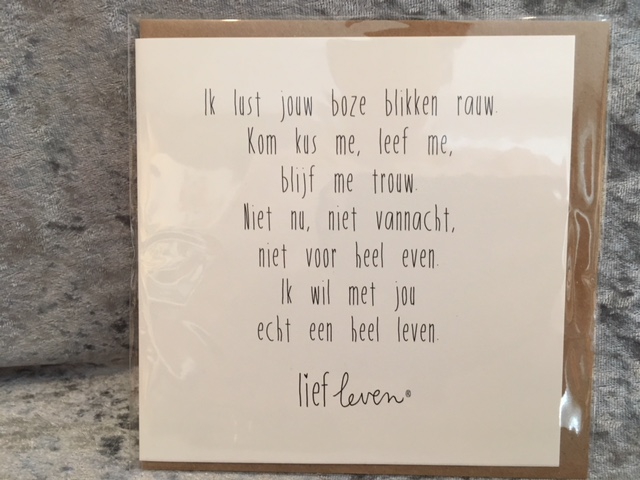 Ik lust jouw boze blikken rauw.
Kom kus me, leef me,
blijf me trouw.
Niet nu, niet vannacht,
niet voor heel even.
Ik wil met jou
echt een heel leven.
lief leven®